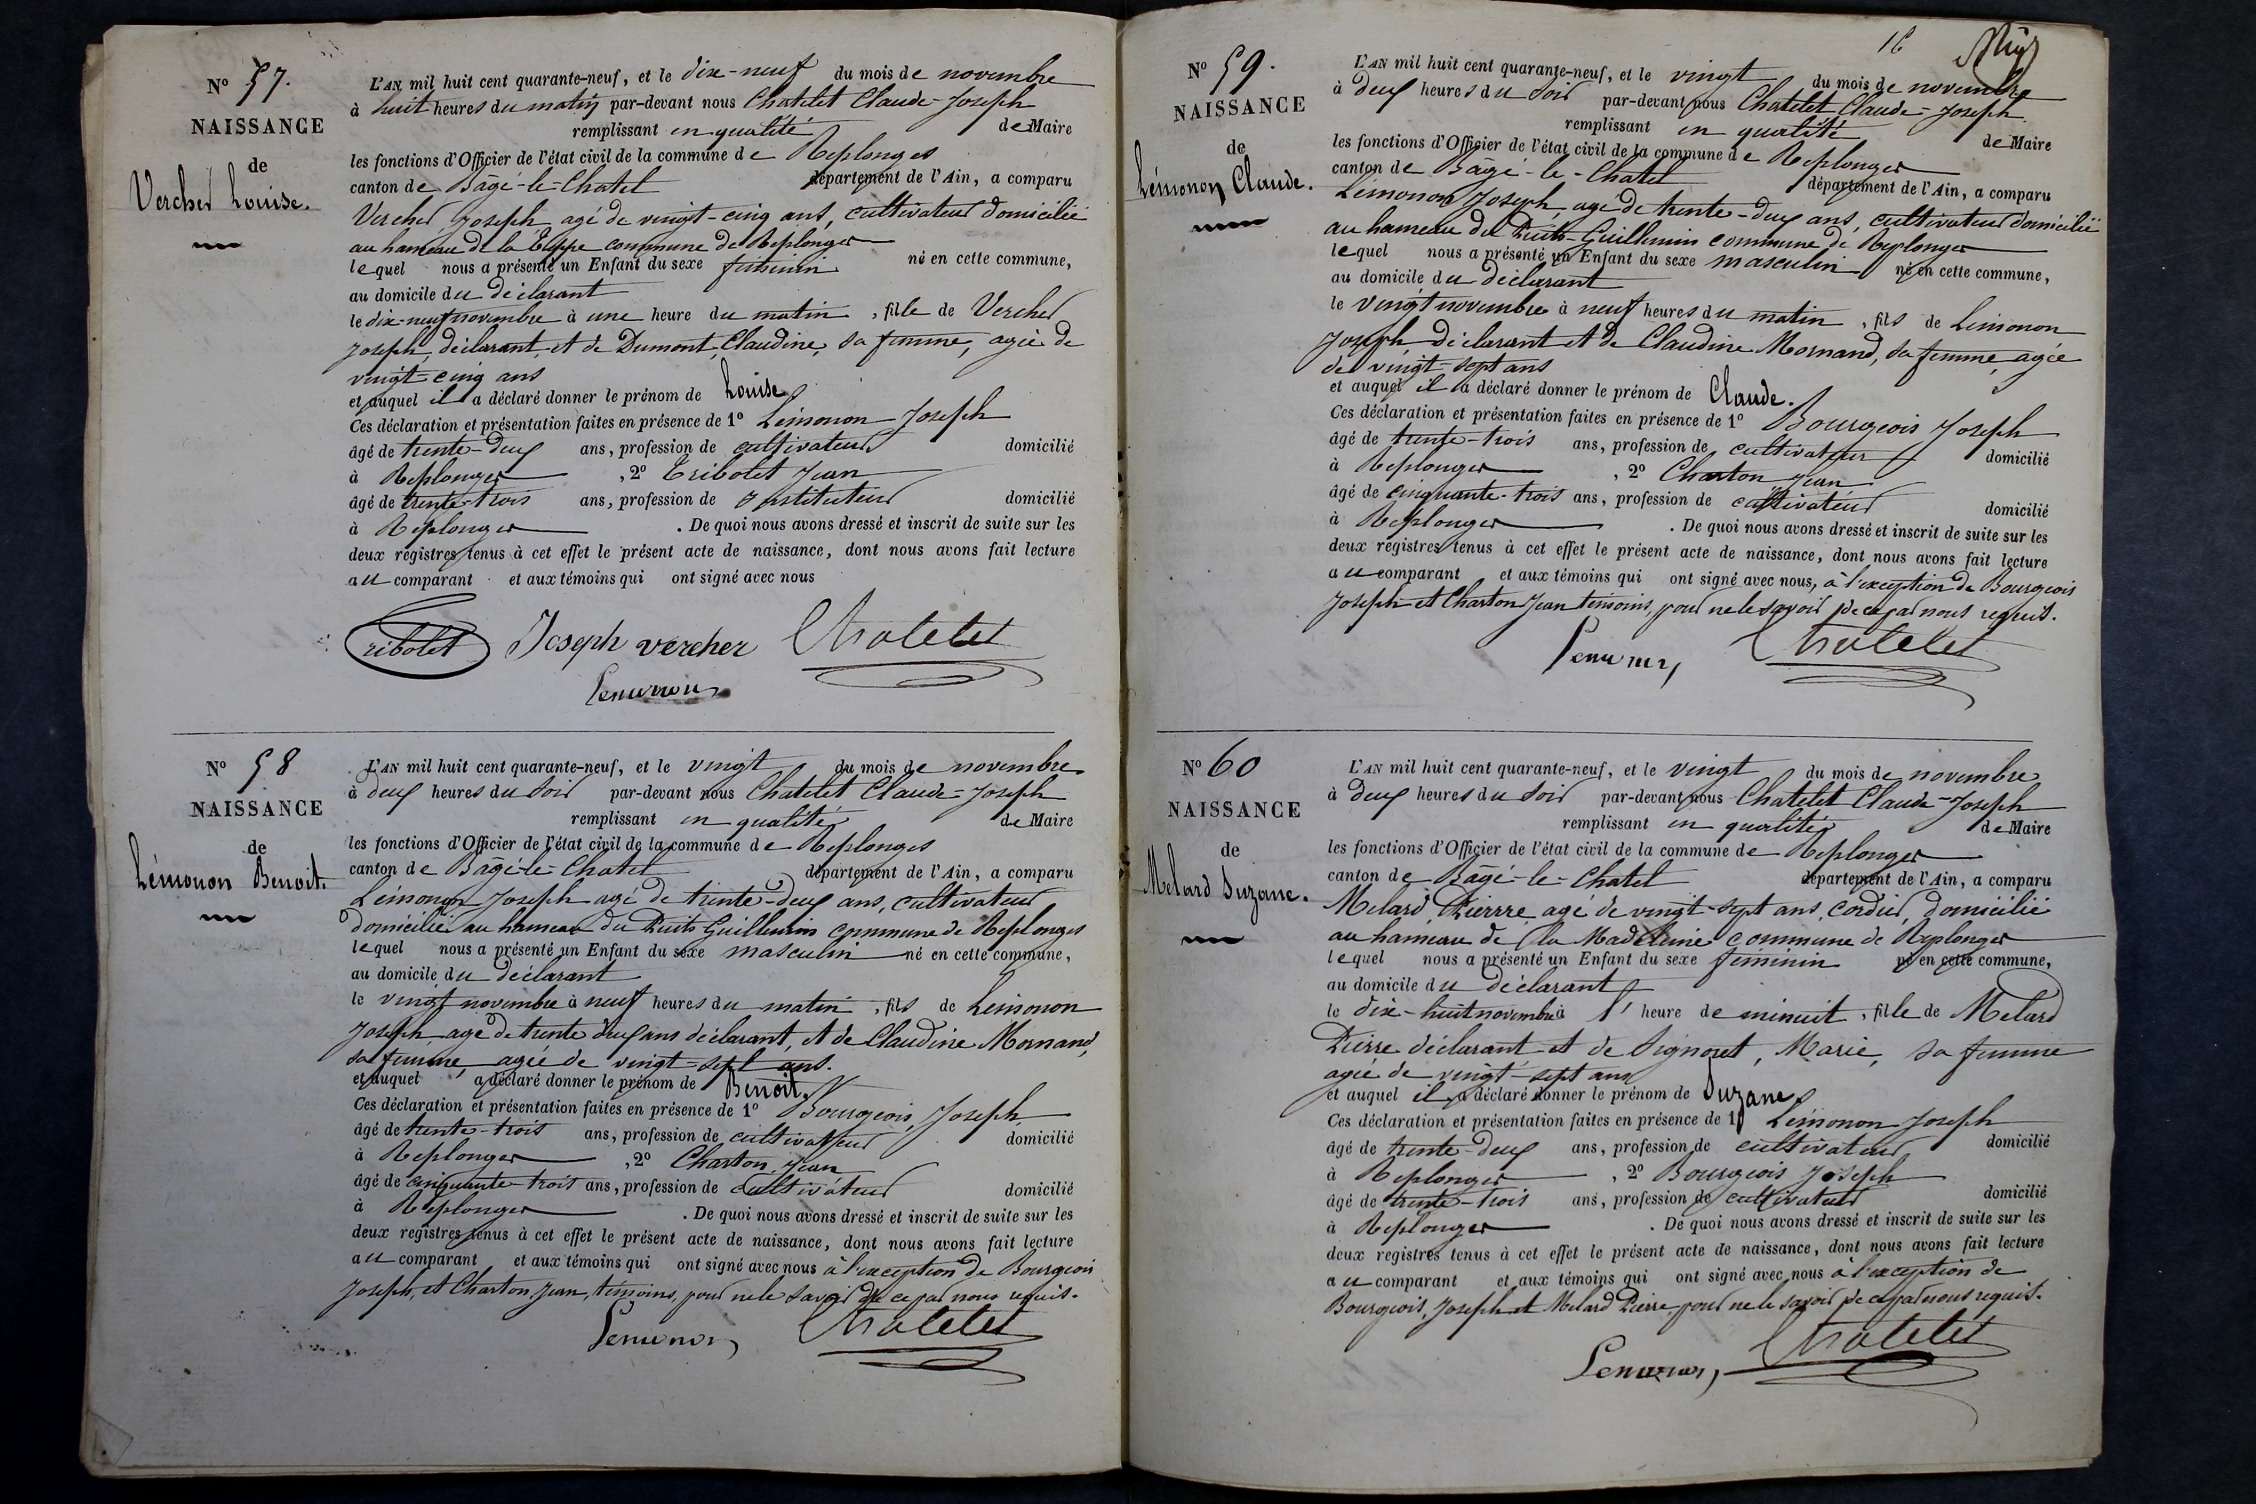 N° 57.
NAISSANCE
de
Vercher Louise.
L'AN mil huit cent quarante-neuf, et le dix-neuf du mois de novembre
à huit heures du matin par-devant nous Chatelet Claude-Joseph
remplissant en qualité de Maire
les fonctions d'Officier de l'état civil de la commune de Replonges
canton de Bâgé-le-Chatel département de l'Ain, a comparu
Vercher Joseph, agé de vingt-cinq ans, cultivateur domicilié
au hameau de la Teppe commune de Replonges
lequel nous a présenté un Enfant du sexe féminin né en cette commune,
au domicile du déclarant
le dix-neuf novembre à une heure du matin, fille de Vercher
Joseph, déclarant, et de Dumont, Claudine, sa femme, agée de
vingt-cinq ans
et auquel il a déclaré donner le prénom de Louise
Ces déclaration et présentation faites en présence de 1° Lémonon Joseph
âgé de trente-deux ans, profession de cultivateur domicilié
à Replonges, 2° Tribolet Jean
âgé de trente-trois ans, profession de Instituteur domicilié
à Replonges. De quoi nous avons dressé et inscrit de suite sur les
deux registres tenus à cet effet le présent acte de naissance, dont nous avons fait lecture
au comparant et aux témoins qui ont signé avec nous
Tribolet Joseph vercher Chatelet
Lemonon
N° 58
NAISSANCE
de
Lémonon Benoit.
L'AN mil huit cent quarante-neuf, et le vingt du mois de novembre
à deux heures du soir par-devant nous Chatelet Claude-Joseph
remplissant en qualité de Maire
les fonctions d'Officier de l'état civil de la commune de Replonges
canton de Bâgé-le-Chatel département de l'Ain, a comparu
Lémonon Joseph agé de trente-deux ans, cultivateur
domicilié au hameau du Puits Guillemin commune de Replonges
lequel nous a présenté un Enfant du sexe masculin né en cette commune,
au domicile du déclarant
le vingt novembre à neuf heures du matin, fils de Lemonon
Joseph, agé de trente deux ans déclarant, et de Claudine Mornand,
sa femme, agée de vingt-sept ans.
et auquel a déclaré donner le prénom de Benoit.
Ces déclaration et présentation faites en présence de 1° Bourgeois, Joseph,
âgé de trente-trois ans, profession de cultivateur domicilié
à Replonges, 2° Charton, Jean
âgé de cinquante-trois ans, profession de cultivateur domicilié
à Replonges. De quoi nous avons dressé et inscrit de suite sur les
deux registres tenus à cet effet le présent acte de naissance, dont nous avons fait lecture
au comparant et aux témoins qui ont signé avec nous à l'exception de Bourgeois
Joseph, et Charton, Jean, témoins, pour ne le savoir de ce par nous requis.
Lemonon Chatelet
16
N° 59.
NAISSANCE
de
Lémonon Claude.
L'AN mil huit cent quarante-neuf, et le vingt du mois de novembre
à deux heures du soir par-devant nous Chatelet Claude-Joseph
remplissant en qualité de Maire
les fonctions d'Officier de l'état civil de la commune de Replonges
canton de Bâgé-le-Chatel département de l'Ain, a comparu
Lémonon Joseph, agé de trente-deux ans, cultivateur domicilié
au hameau du Puits-Guillemin commune de Replonges
lequel nous a présenté un Enfant du sexe masculin né en cette commune,
au domicile du déclarant
le vingt novembre à neuf heures du matin, fils de Lémonon
Joseph, déclarant et de Claudine Mornand, sa femme, agée
de vingt-sept ans
et auquel il a déclaré donner le prénom de Claude.
Ces déclaration et présentation faites en présence de 1° Bourgeois Joseph
âgé de trente-trois ans, profession de cultivateur domicilié
à Replonges, 2° Charton Jean
âgé de cinquante-trois ans, profession de cultivateur domicilié
à Replonges. De quoi nous avons dressé et inscrit de suite sur les
deux registres tenus à cet effet le présent acte de naissance, dont nous avons fait lecture
au comparant et aux témoins qui ont signé avec nous, à l'exception de Bourgeois
Joseph et Charton Jean témoins, pour ne le savoir de ce par nous requis.
Lemonon Chatelet
N° 60
NAISSANCE
de
Melard Suzane.
L'AN mil huit cent quarante-neuf, et le vingt du mois de novembre
à deux heures du soir par-devant nous Chatelet Claude-Joseph
remplissant en qualité de Maire
les fonctions d'Officier de l'état civil de la commune de Replonges
canton de Bâgé-le-Chatel département de l'Ain, a comparu
Melard Pierrre agé de vingt-sept ans, cordier, domicilié
au hameau de la Madeleine commune de Replonges
lequel nous a présenté un Enfant du sexe féminin né en cette commune,
au domicile du déclarant
le dix-huit novembre à l'heure de minuit, fille de Melard
Pierre déclarant et de Signoret, Marie, sa femme
agée de vingt-sept ans
et auquel il a déclaré donner le prénom de Suzane
Ces déclaration et présentation faites en présence de 1° Lémonon Joseph
âgé de trente-deux ans, profession de cultivateur domicilié
à Replonges, 2° Bourgeois Joseph
âgé de trente-trois ans, profession de cultivateur domicilié
à Replonges. De quoi nous avons dressé et inscrit de suite sur les
deux registres tenus à cet effet le présent acte de naissance, dont nous avons fait lecture
au comparant et aux témoins qui ont signé avec nous à l'exception de
Bourgeois, Joseph et Melard Pierre, pour ne le savoir de ce par nous requis.
Lemonon Chatelet